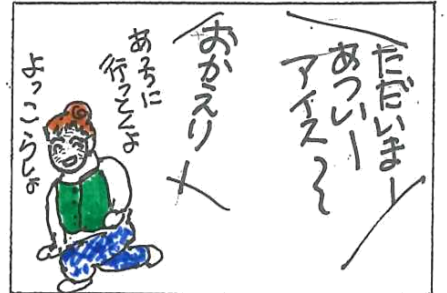 ただいまー
あつい一
アイス〜
おかえりー
あっちに
行っとくよ
よっこらしょ